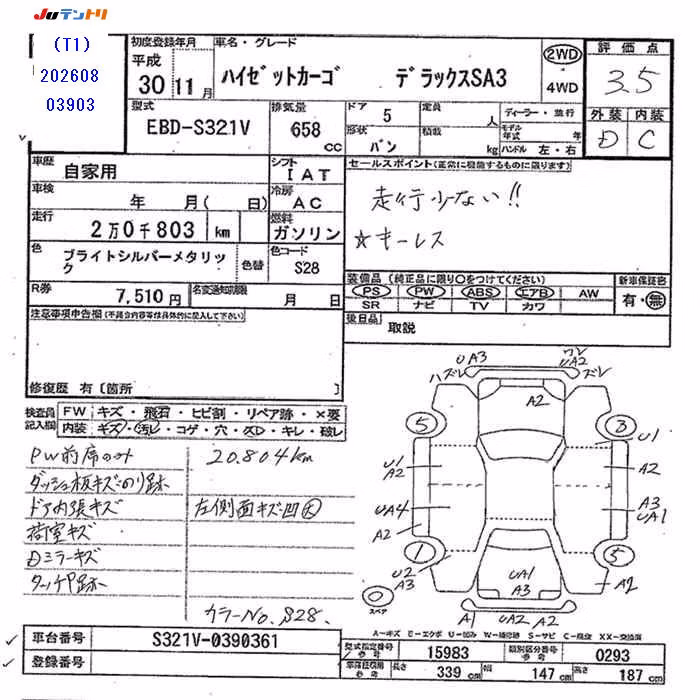 Juテントリ
(T1)
202608
03903
初度登録年月
平成
30 11月
車名・グレード
ハイゼットカーゴ デラックスSA3
2WD
4WD
評価点
3.5
外装 内装
D C
型式
EBD-S321V
排気量
658 cc
ドア 5
形状 バン
定員 人
積載 kg
ディーラー・並行
モデル年式 年
ハンドル 左・右
車歴 自家用
シフト IAT
セールスポイント(正常に機能するものに限ります)
走行少ない!!
☆キーレス
車検 年 月( 日)
冷房 AC
走行 2万0千803 km
燃料 ガソリン
色 ブライトシルバーメタリック
色替
色コード S28
R券 7,510円
名変通知期限 月 日
装備品(純正品に限り○をつけてください)
PS PW ABS エアB AW
SR ナビ TV カワ
新車保証書
有・無
後日品 取説
注意事項申告欄(不具合内容等は具体的に記入して下さい)
修復歴 有〔箇所 〕
検査員記入欄
FW キズ・飛石・ヒビ割・リペア跡・×要
内装 キズ・汚レ・コゲ・穴・スレ・キレ・破レ
PW前席のみ
ダッシュ板キズ・のり跡
ドア内張キズ
荷室キズ
Dミラーキズ
タッチP跡
20.804km
左側面キズ・凹大
カラーNo. S28.
UA3
ハズレ
UA2
ズレ
A2
5
3
U1
U1
A2
A2
UA4
A3
UA1
A2
1
5
U2
A3
UA1
A3
A2
スペア
A1
UA2 A2
A-キズ E-エクボ U-凹み W-補修跡 S-サビ C-腐食 XX-交換済
車台番号 S321V-0390361
登録番号
型式指定番号 15983
類別区分番号 0293
長さ 339 cm
幅 147 cm
高さ 187 cm